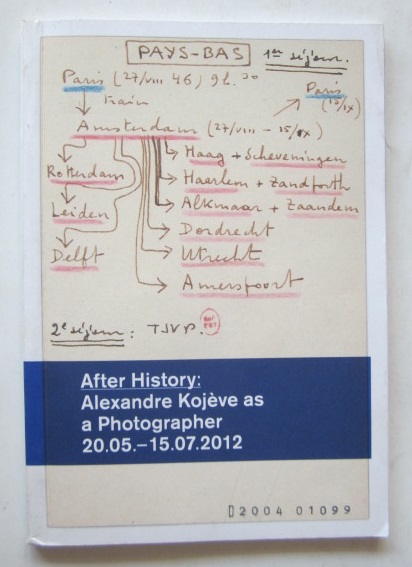 PAYS-BAS
1er séjour.
Paris (27/VIII 46) 9h.30
train
Paris
(15/IX)
Amsterdam (27/VIII – 15/IX)
Rotterdam
Leiden
Delft
Haag + Scheveningen
Haarlem + Zandforth
Alkmaar + Zaandem
Dordrecht
Utrecht
Amersfoort
2e séjour: TSVP.
After History:
Alexandre Kojève as
a Photographer
20.05.–15.07.2012
2004 01099